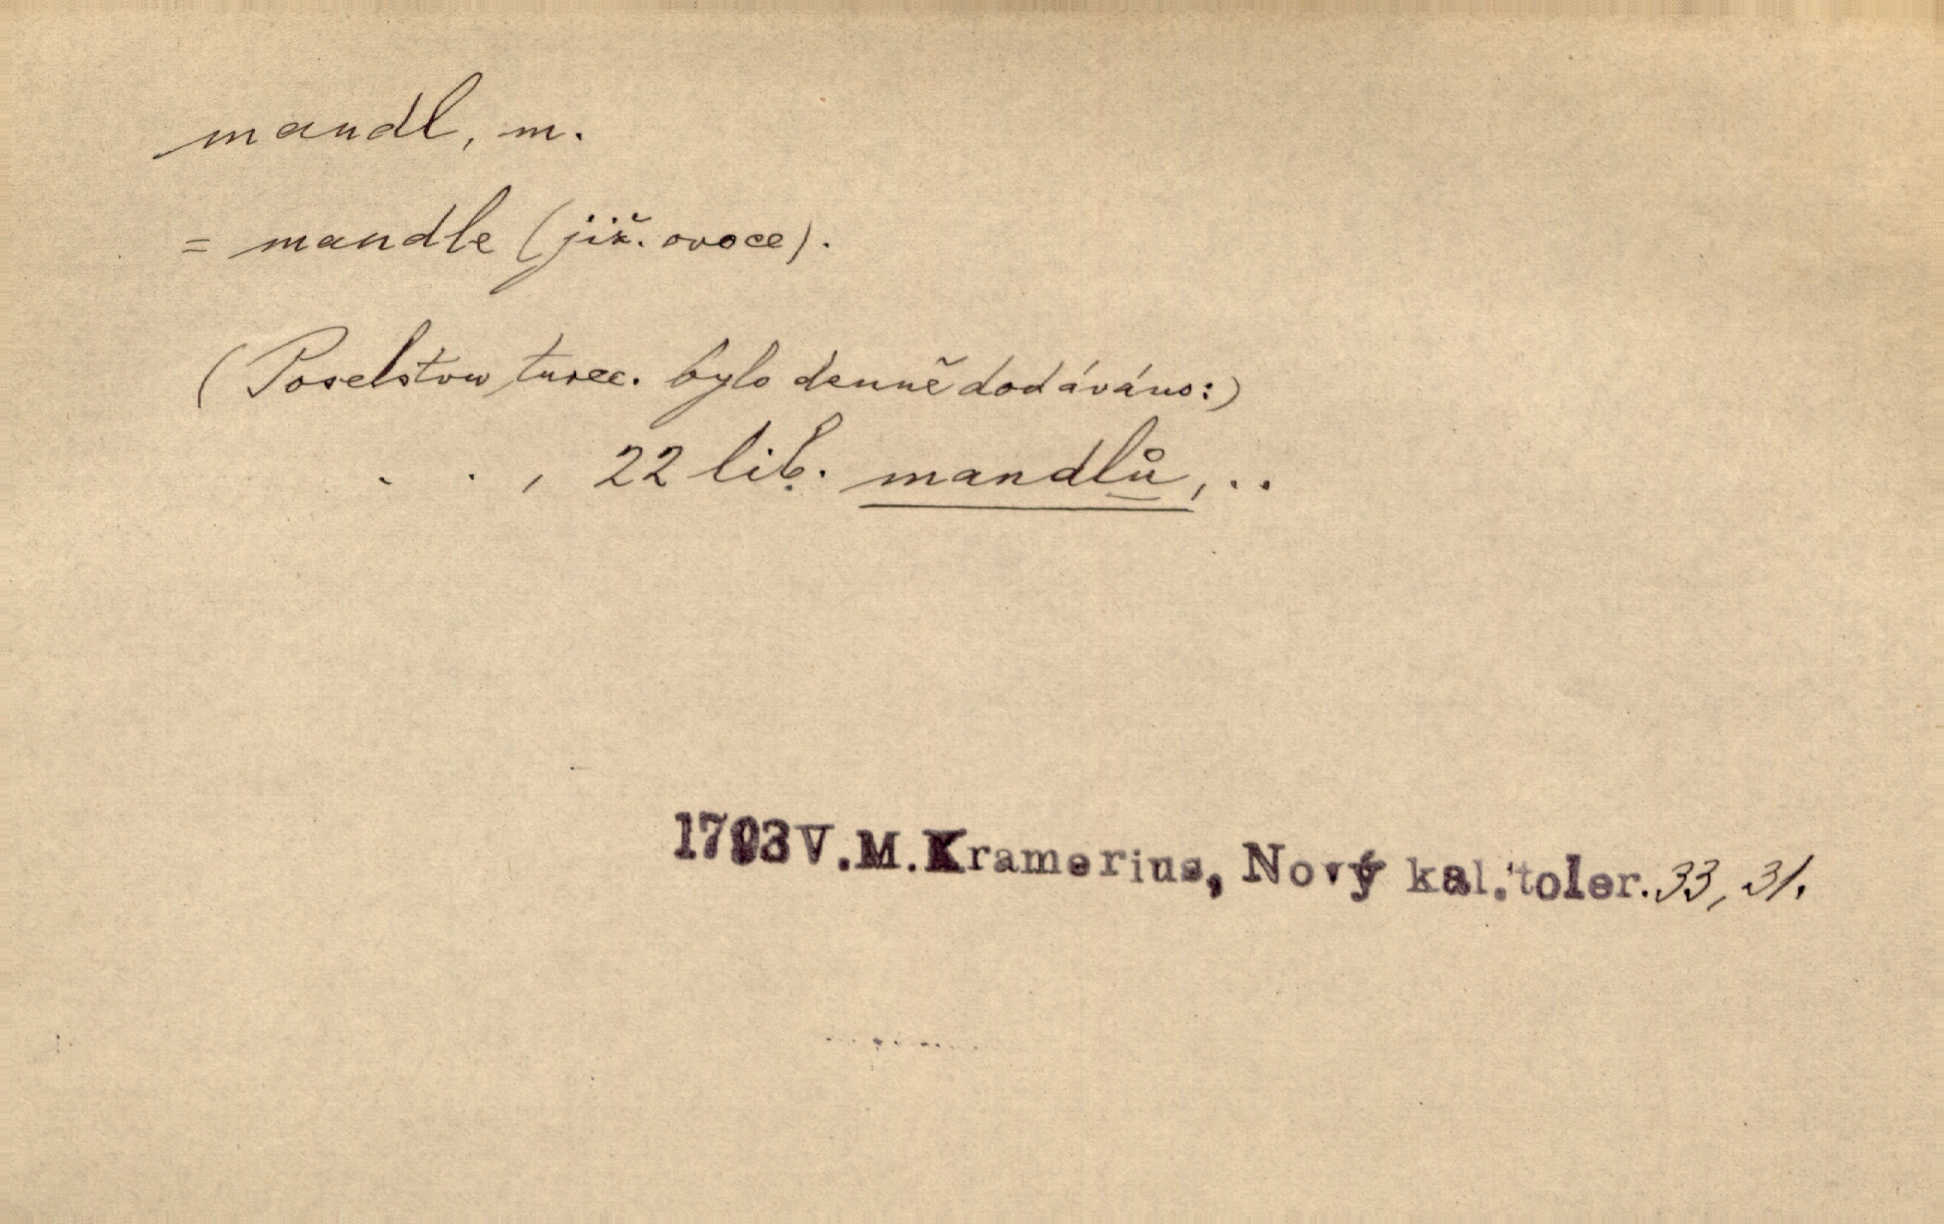 mandl, m.
= mandle (již. ovoce).
(Poselstvu turec. bylo denně dodáváno:)
. . , 22 lib. mandlů, . .
1793 V.M.Kramerius, Nový kal. toler. 33, 31.